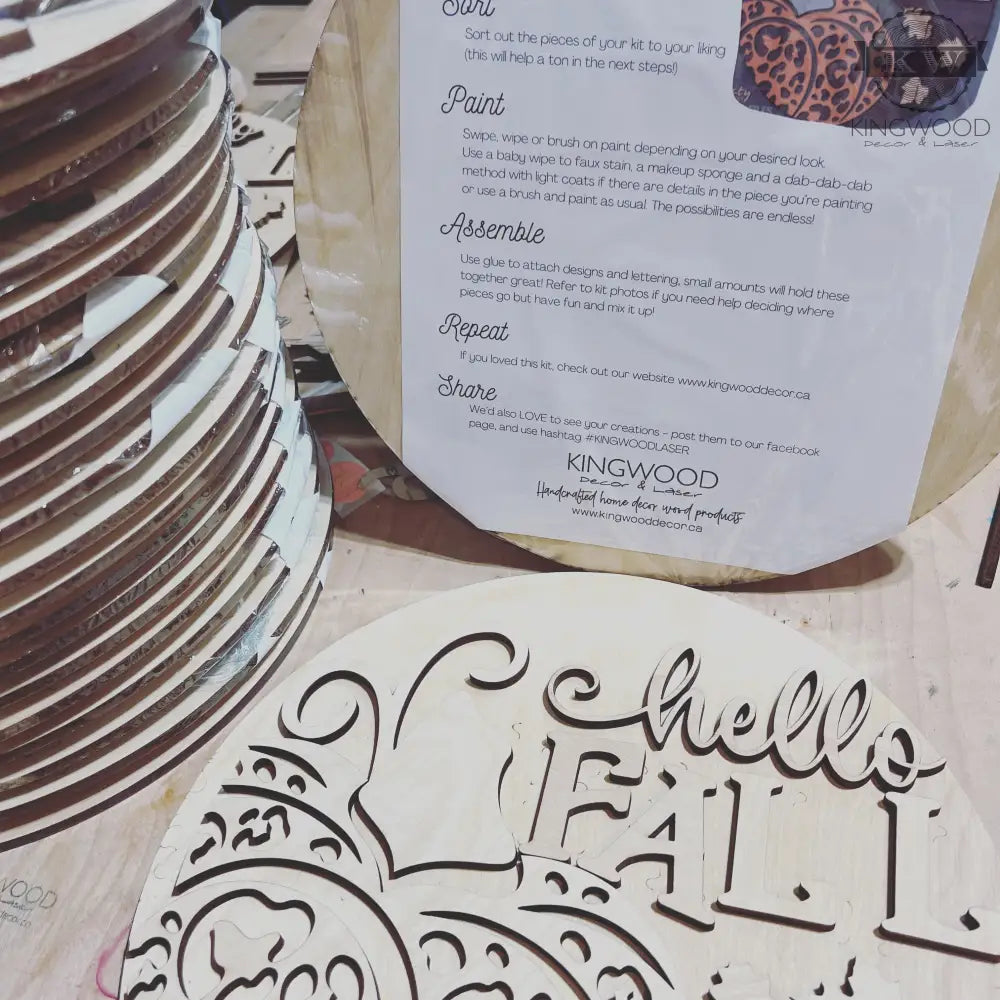 Sort
Sort out the pieces of your kit to your liking
(this will help a ton in the next steps!)
Paint
Swipe, wipe or brush on paint depending on your desired look.
Use a baby wipe to faux stain, a makeup sponge and a dab-dab-dab
method with light coats if there are details in the piece you're painting
or use a brush and paint as usual. The possibilities are endless!
Assemble
Use glue to attach designs and lettering, small amounts will hold these
together great! Refer to kit photos if you need help deciding where
pieces go but have fun and mix it up!
Repeat
If you loved this kit, check out our website www.kingwooddecor.ca
Share
We'd also LOVE to see your creations - post them to our facebook
page, and use hashtag #KINGWOODLASER
KINGWOOD
Decor & Laser
Handcrafted home decor wood products
www.kingwooddecor.ca
KW
KINGWOOD
Decor & Laser
hello
FALL